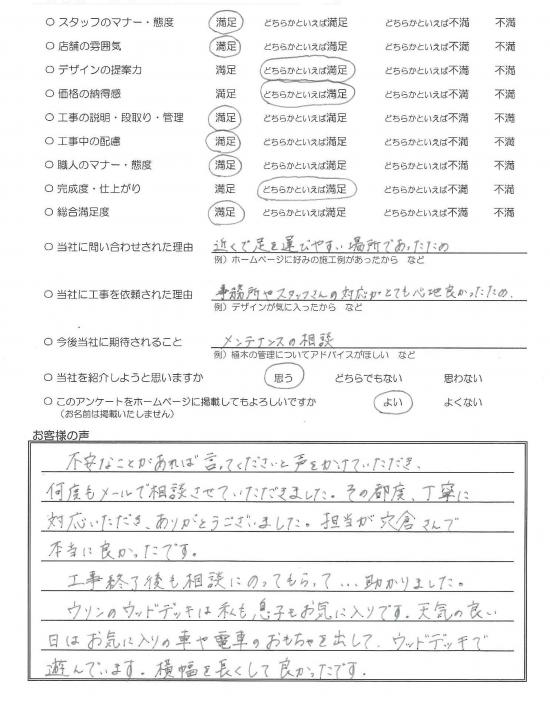 ○ スタッフのマナー・態度 満足 どちらかといえば満足 どちらかといえば不満 不満
○ 店舗の雰囲気 満足 どちらかといえば満足 どちらかといえば不満 不満
○ デザインの提案力 満足 どちらかといえば満足 どちらかといえば不満 不満
○ 価格の納得感 満足 どちらかといえば満足 どちらかといえば不満 不満
○ 工事の説明・段取り・管理 満足 どちらかといえば満足 どちらかといえば不満 不満
○ 工事中の配慮 満足 どちらかといえば満足 どちらかといえば不満 不満
○ 職人のマナー・態度 満足 どちらかといえば満足 どちらかといえば不満 不満
○ 完成度・仕上がり 満足 どちらかといえば満足 どちらかといえば不満 不満
○ 総合満足度 満足 どちらかといえば満足 どちらかといえば不満 不満
○ 当社に問い合わせされた理由 近くで足を運びやすい場所であったため
例）ホームページに好みの施工例があったから など
○ 当社に工事を依頼された理由 事務所やスタッフさんの対応がとても心地良かったため、
例）デザインが気に入ったから など
○ 今後当社に期待されること メンテナンスの相談
例）植木の管理についてアドバイスがほしい など
○ 当社を紹介しようと思いますか 思う どちらでもない 思わない
○ このアンケートをホームページに掲載してもよろしいですか よい よくない
（お名前は掲載いたしません）
お客様の声
不安なことがあれば言ってくださいと声をかけていただき、
何度もメールで相談させていただきました。その都度、丁寧に
対応いただき、ありがとうございました。担当が穴倉さんで
本当に良かったです。
工事終了後も相談にのってもらって...助かりました。
ウリンのウッドデッキは私も息子もお気に入りです。天気の良い
日はお気に入りの車や電車のおもちゃを出して、ウッドデッキで
遊んでいます。横幅を長くして良かったです。